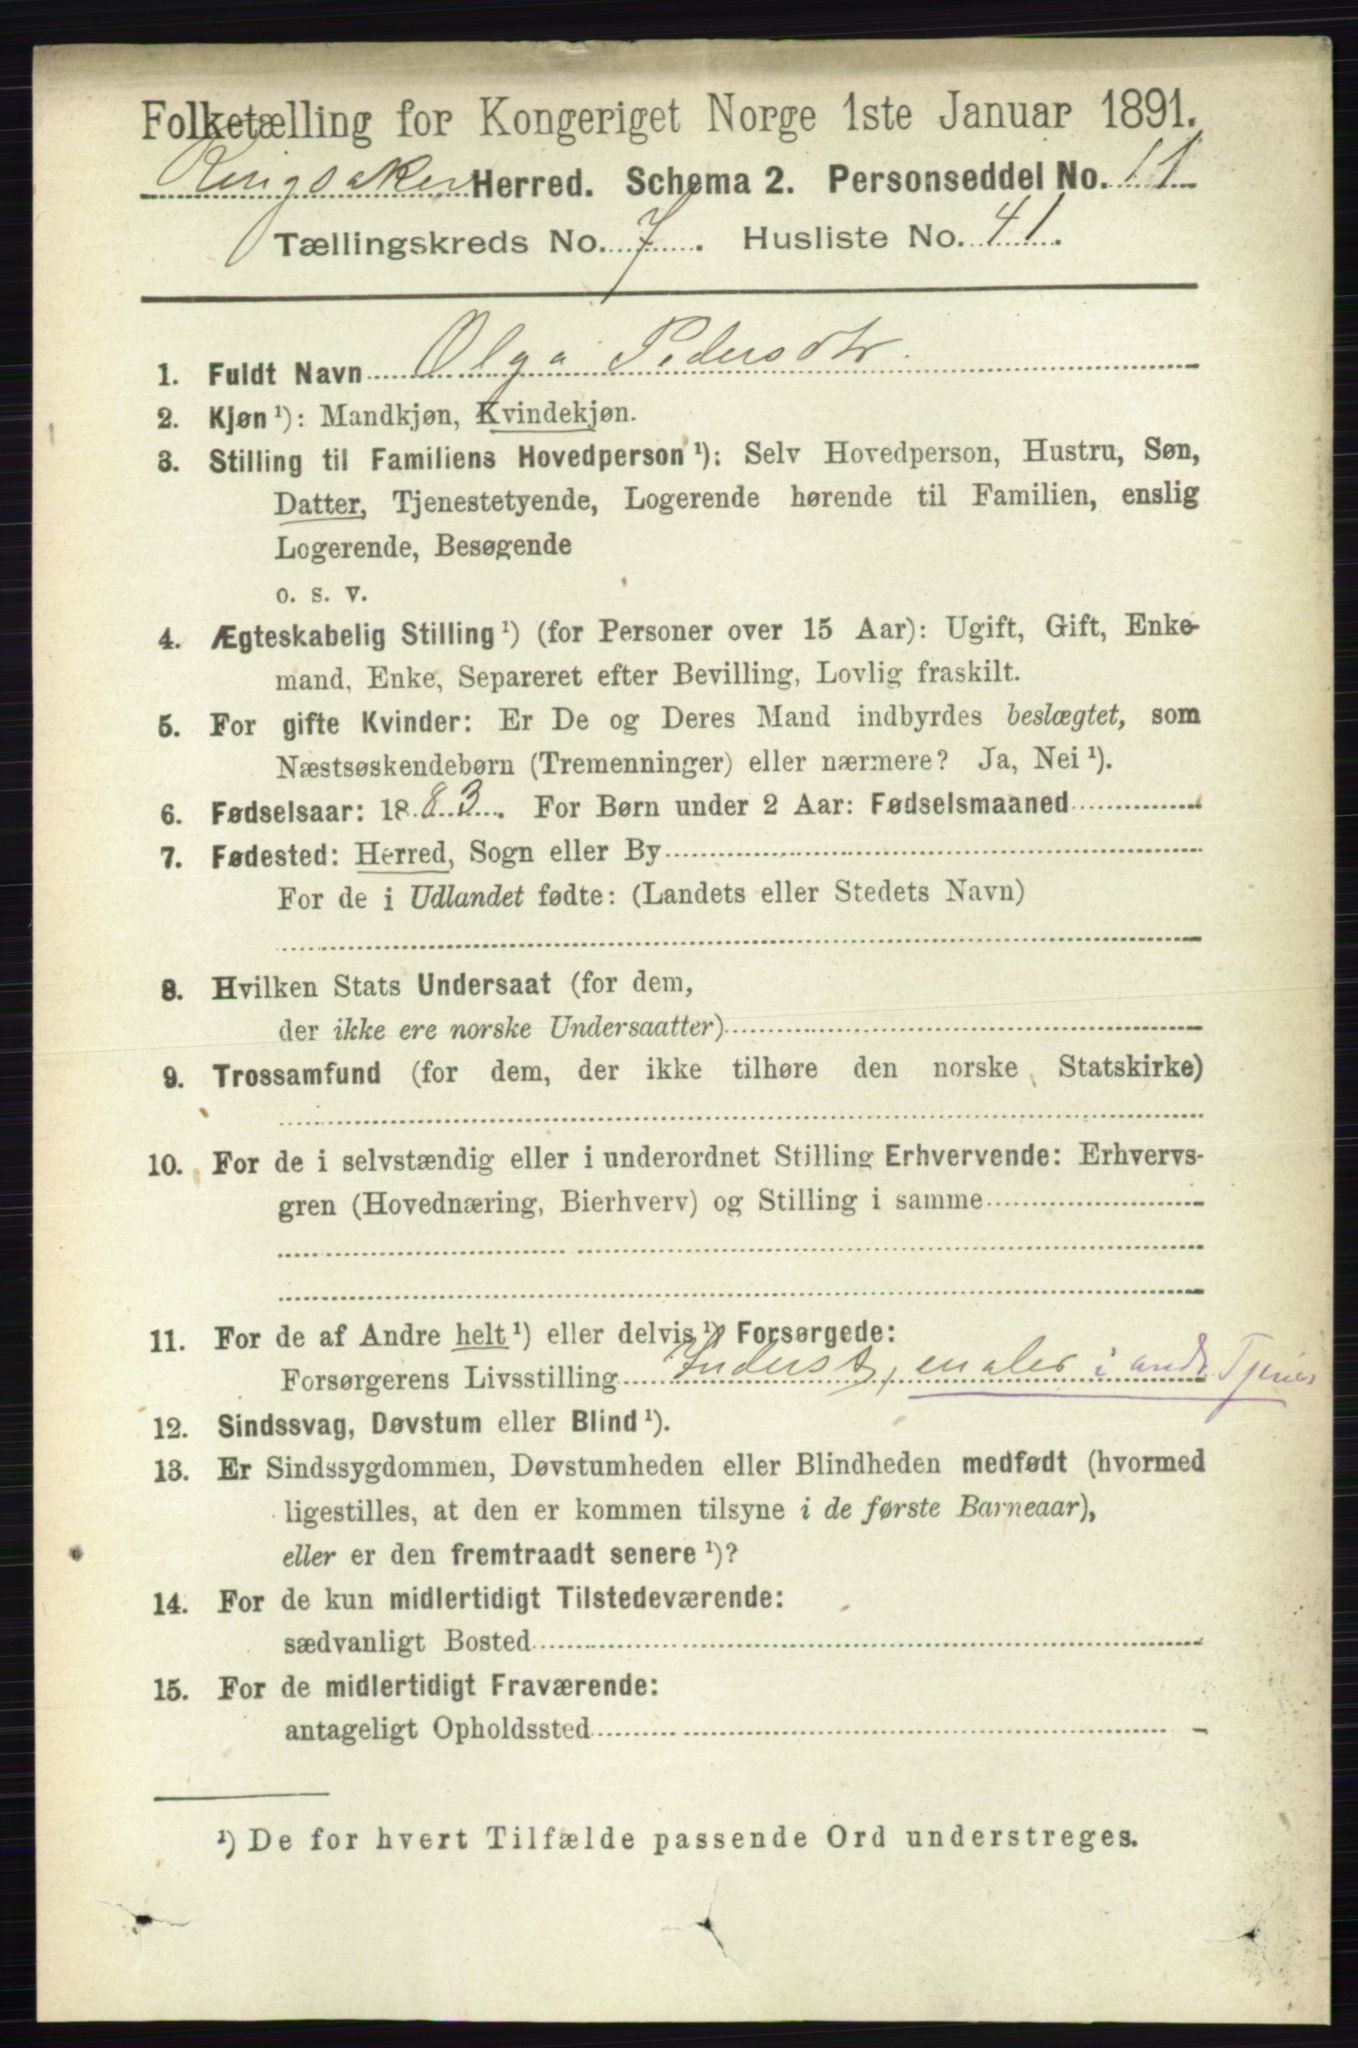 Folketælling for Kongeriget Norge 1ste Januar 1891.
Ringsaker Herred. Schema 2. Personseddel No. 11
Tællingskreds No. 7. Husliste No. 41.
1. Fuldt Navn Olga Pedersdtr.
2. Kjøn ¹): Mandkjøn, Kvindekjøn.
3. Stilling til Familiens Hovedperson ¹): Selv Hovedperson, Hustru, Søn,
Datter, Tjenestetyende, Logerende hørende til Familien, enslig
Logerende, Besøgende
o. s. v.
4. Ægteskabelig Stilling ¹) (for Personer over 15 Aar): Ugift, Gift, Enke-
mand, Enke, Separeret efter Bevilling, Lovlig fraskilt.
5. For gifte Kvinder: Er De og Deres Mand indbyrdes beslægtet, som
Næstsøskendebørn (Tremenninger) eller nærmere? Ja, Nei ¹).
6. Fødselsaar: 1883. For Børn under 2 Aar: Fødselsmaaned
7. Fødested: Herred, Sogn eller By
For de i Udlandet fødte: (Landets eller Stedets Navn)
8. Hvilken Stats Undersaat (for dem,
der ikke ere norske Undersaatter)
9. Trossamfund (for dem, der ikke tilhøre den norske Statskirke)
10. For de i selvstændig eller i underordnet Stilling Erhvervende: Erhvervs-
gren (Hovednæring, Bierhverv) og Stilling i samme
11. For de af Andre helt ¹) eller delvis ¹) Forsørgede:
Forsørgerens Livsstilling Inderst, maler i andr Tjenes
12. Sindssvag, Døvstum eller Blind ¹).
13. Er Sindssygdommen, Døvstumheden eller Blindheden medfødt (hvormed
ligestilles, at den er kommen tilsyne i de første Barneaar),
eller er den fremtraadt senere ¹)?
14. For de kun midlertidigt Tilstedeværende:
sædvanligt Bosted
15. For de midlertidigt Fraværende:
antageligt Opholdssted
¹) De for hvert Tilfælde passende Ord understreges.